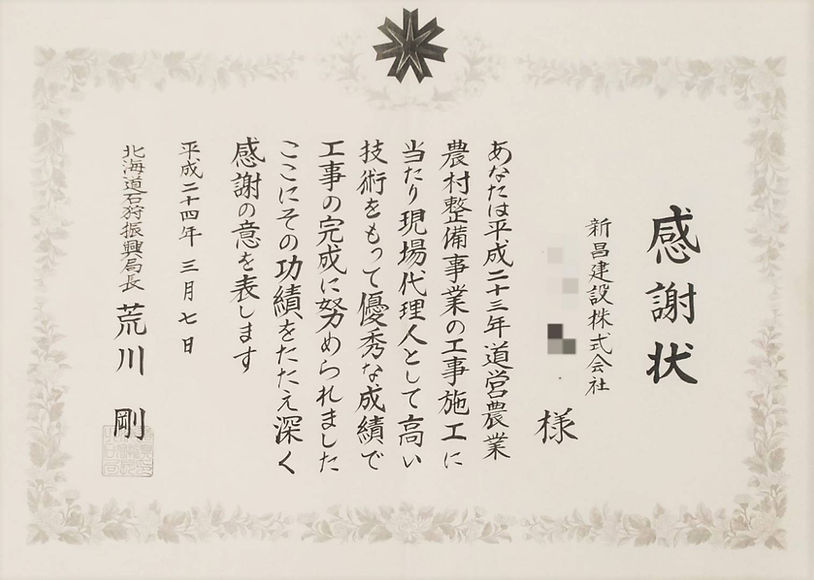 感謝状
新昌建設株式会社
様
あなたは平成二十三年道営農業
農村整備事業の工事施工に
当たり現場代理人として高い
技術をもって優秀な成績で
工事の完成に努められました
ここにその功績をたたえ深く
感謝の意を表します
平成二十四年三月七日
北海道石狩振興局長 荒川 剛